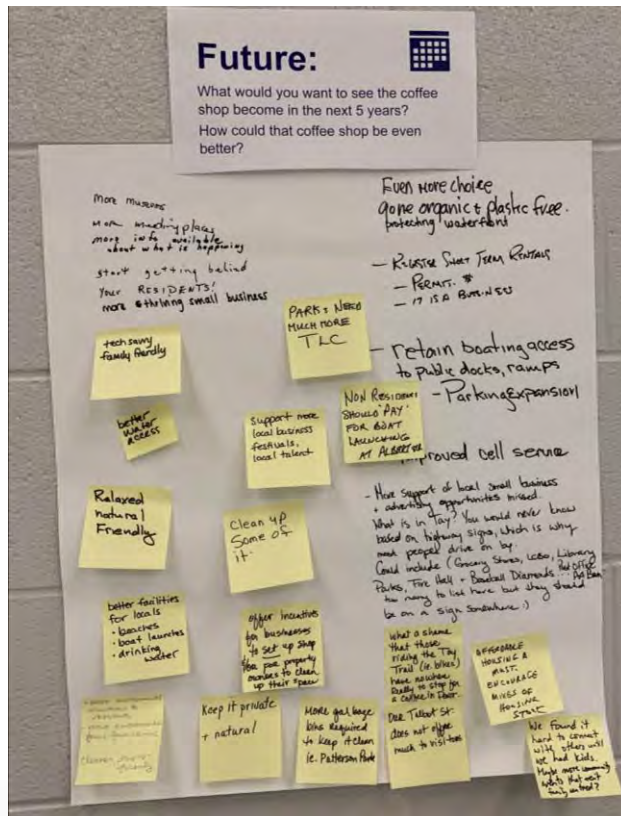 Future:
What would you want to see the coffee
shop become in the next 5 years?
How could that coffee shop be even
better?
More museums
More meeting places
more info available
about what is happening
start getting behind
Your RESIDENTS!
more thriving small business
Even more choice
gone organic & plastic free.
protecting waterfront
- REGISTER SHORT TERM RENTALS
- PERMIT. $
- IT IS A BUSINESS
- retain boating access
to public docks, ramps
- Parking Expansion
improved cell service
- More support of local small business
+ advertising opportunities missed.
What is in Tay? You would never know
based on highway signs, which is why
most people drive on by.
Could include (Grocery Stores, LCBO, Library
Parks, Fire Hall + Baseball Diamonds Post Office
too many to list here but they should
be on a sign somewhere :)
PARKS NEED
MUCH MORE
TLC
tech savvy
family friendly
NON RESIDENTS
SHOULD 'PAY'
FOR BOAT
LAUNCHING
AT
better
water
access
Support more
local business
festivals,
local talent
Relaxed
natural
Friendly
Clean up
Some of
it.
better facilities
for locals
• beaches
• boat launches
• drinking
water
offer incentives
for businesses
to set up shop
for property
owners to clean
up their space
what a shame
that those
riding the Tay
Trail (ie. bikes)
have nowhere
really to stop for
a coffee in
AFFORDABLE
HOUSING A
MUST.
ENCOURAGE
MIXES OF
HOUSING
STOCK
Keep it private
+ natural
More garbage
bins required
to keep it clean
ie. Patterson Park
Talbot St.
does not offer
much to visitors
We found it
hard to connect
with others until
we had kids.
Maybe more community
events that aren't
family centred?